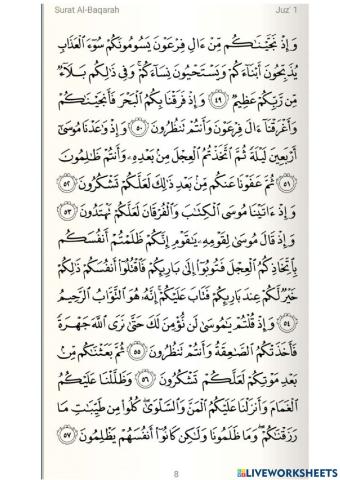 Surat Al-Baqarah Juz' 1
وَإِذْ نَجَّيْنَٰكُم مِّنْ ءَالِ فِرْعَوْنَ يَسُومُونَكُمْ سُوٓءَ ٱلْعَذَابِ
يُذَبِّحُونَ أَبْنَآءَكُمْ وَيَسْتَحْيُونَ نِسَآءَكُمْ ۚ وَفِى ذَٰلِكُم بَلَآءٌ
مِّن رَّبِّكُمْ عَظِيمٌ ٤٩ وَإِذْ فَرَقْنَا بِكُمُ ٱلْبَحْرَ فَأَنجَيْنَٰكُمْ
وَأَغْرَقْنَآ ءَالَ فِرْعَوْنَ وَأَنتُمْ تَنظُرُونَ ٥٠ وَإِذْ وَٰعَدْنَا مُوسَىٰٓ
أَرْبَعِينَ لَيْلَةً ثُمَّ ٱتَّخَذْتُمُ ٱلْعِجْلَ مِنۢ بَعْدِهِۦ وَأَنتُمْ ظَٰلِمُونَ
٥١ ثُمَّ عَفَوْنَا عَنكُم مِّنۢ بَعْدِ ذَٰلِكَ لَعَلَّكُمْ تَشْكُرُونَ ٥٢
وَإِذْ ءَاتَيْنَا مُوسَى ٱلْكِتَٰبَ وَٱلْفُرْقَانَ لَعَلَّكُمْ تَهْتَدُونَ ٥٣
وَإِذْ قَالَ مُوسَىٰ لِقَوْمِهِۦ يَٰقَوْمِ إِنَّكُمْ ظَلَمْتُمْ أَنفُسَكُم
بِٱتِّخَاذِكُمُ ٱلْعِجْلَ فَتُوبُوٓا۟ إِلَىٰ بَارِئِكُمْ فَٱقْتُلُوٓا۟ أَنفُسَكُمْ ذَٰلِكُمْ
خَيْرٌ لَّكُمْ عِندَ بَارِئِكُمْ فَتَابَ عَلَيْكُمْ ۚ إِنَّهُۥ هُوَ ٱلتَّوَّابُ ٱلرَّحِيمُ
٥٤ وَإِذْ قُلْتُمْ يَٰمُوسَىٰ لَن نُّؤْمِنَ لَكَ حَتَّىٰ نَرَى ٱللَّهَ جَهْرَةً
فَأَخَذَتْكُمُ ٱلصَّٰعِقَةُ وَأَنتُمْ تَنظُرُونَ ٥٥ ثُمَّ بَعَثْنَٰكُم مِّنۢ
بَعْدِ مَوْتِكُمْ لَعَلَّكُمْ تَشْكُرُونَ ٥٦ وَظَلَّلْنَا عَلَيْكُمُ
ٱلْغَمَامَ وَأَنزَلْنَا عَلَيْكُمُ ٱلْمَنَّ وَٱلسَّلْوَىٰ ۖ كُلُوا۟ مِن طَيِّبَٰتِ مَا
رَزَقْنَٰكُمْ ۖ وَمَا ظَلَمُونَا وَلَٰكِن كَانُوٓا۟ أَنفُسَهُمْ يَظْلِمُونَ ٥٧
8
LIVEWORKSHEETS